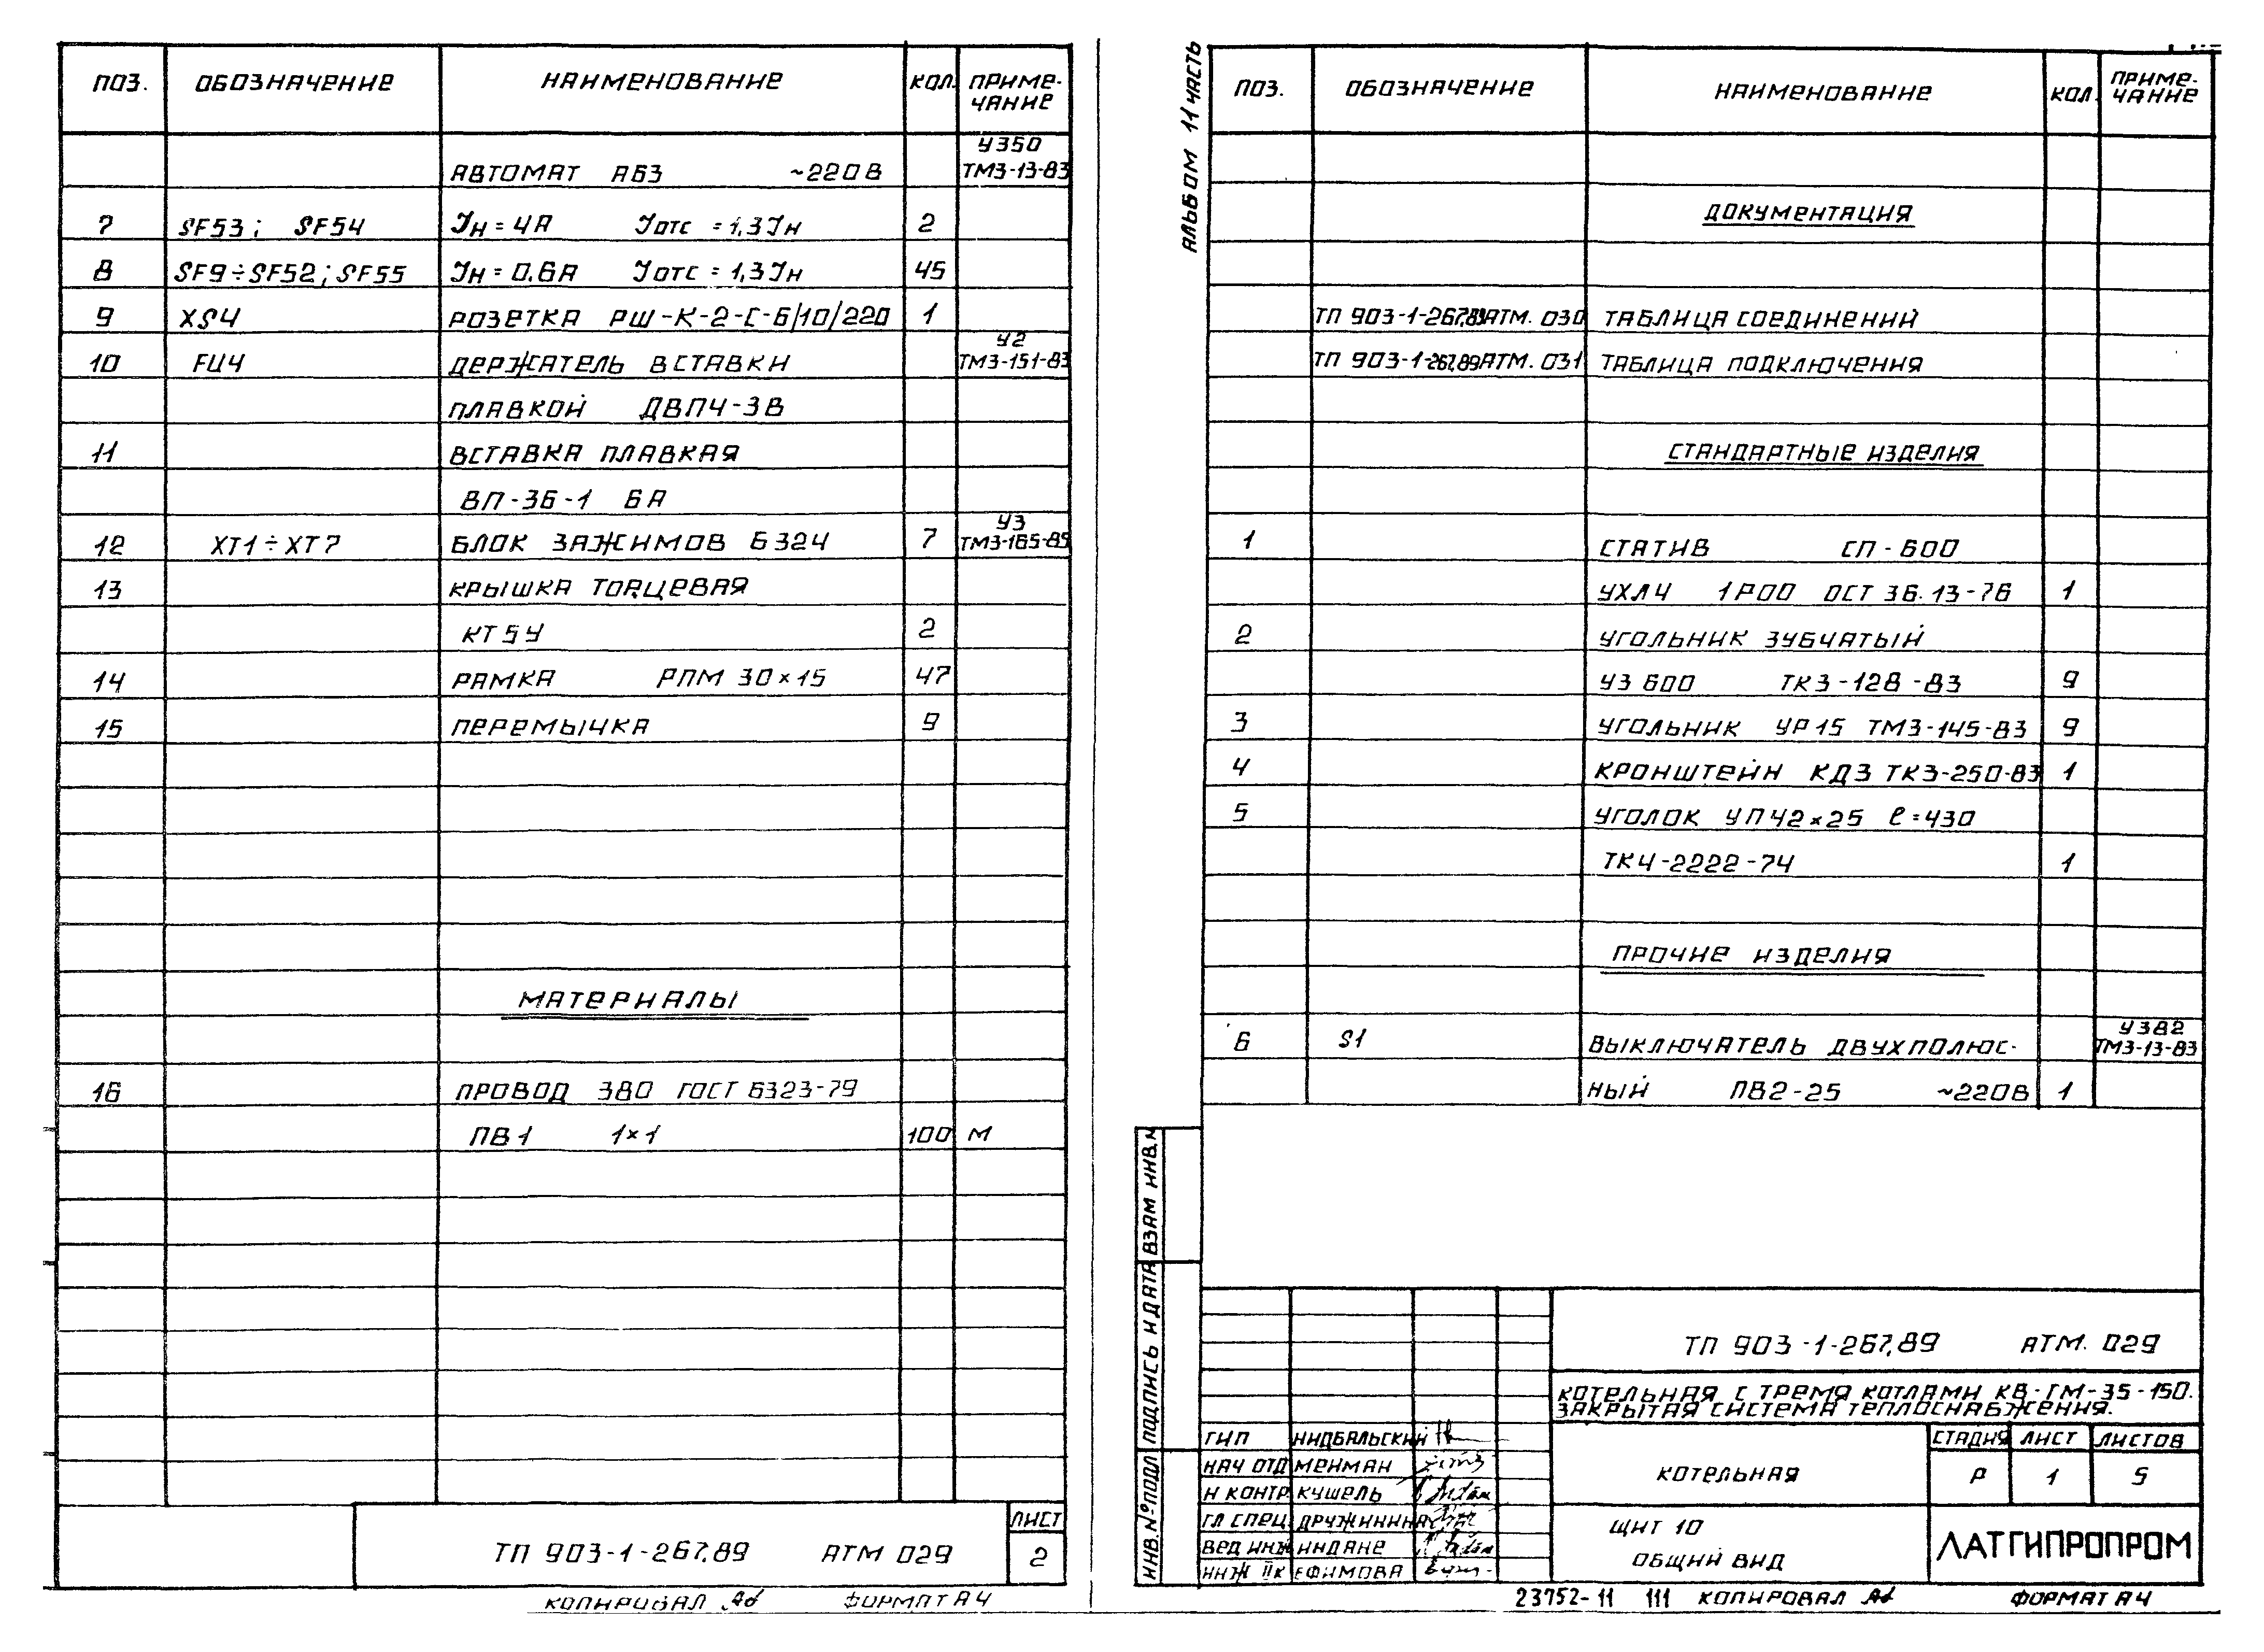 ПОЗ. ОБОЗНАЧЕНИЕ НАИМЕНОВАНИЕ КОЛ. ПРИМЕ-
ЧАНИЕ
У350
АВТОМАТ АБ3 ~220В ТМ3-13-83
7 SF53; SF54 Iн=4А Iотс=1,3Iн 2
8 SF9÷SF52; SF55 Iн=0.6А Iотс=1,3Iн 45
9 XS4 РОЗЕТКА РШ-К-2-С-6/10/220 1
У2
10 FU4 ДЕРЖАТЕЛЬ ВСТАВКИ ТМ3-151-83
ПЛАВКОЙ ДВП4-3В
11 ВСТАВКА ПЛАВКАЯ
ВП-3Б-1 6А
У3
12 XT1÷XT7 БЛОК ЗАЖИМОВ Б324 7 ТМ3-165-85
13 КРЫШКА ТОРЦЕВАЯ
КТ5У 2
14 РАМКА РПМ 30×15 47
15 ПЕРЕМЫЧКА 9
МАТЕРИАЛЫ
16 ПРОВОД 380 ГОСТ 6323-79
ПВ1 1×1 100 М
ТП 903-1-267.89 АТМ 029
ЛИСТ
2
КОПИРОВАЛ ФОРМАТ А4
АЛЬБОМ 11 ЧАСТЬ
ПОЗ. ОБОЗНАЧЕНИЕ НАИМЕНОВАНИЕ КОЛ. ПРИМЕ-
ЧАНИЕ
ДОКУМЕНТАЦИЯ
ТП 903-1-267.89 АТМ. 030 ТАБЛИЦА СОЕДИНЕНИЙ
ТП 903-1-267.89 АТМ. 031 ТАБЛИЦА ПОДКЛЮЧЕНИЯ
СТАНДАРТНЫЕ ИЗДЕЛИЯ
1 СТАТИВ СП-600
УХЛ4 1Р00 ОСТ 36.13-76 1
2 УГОЛЬНИК ЗУБЧАТЫЙ
УЗ 600 ТК3-128-83 9
3 УГОЛЬНИК УР15 ТМ3-145-83 9
4 КРОНШТЕЙН КД3 ТК3-250-83 1
5 УГОЛОК УП42×25 ℓ=430
ТК4-2222-74 1
ПРОЧИЕ ИЗДЕЛИЯ
У382
6 S1 ВЫКЛЮЧАТЕЛЬ ДВУХПОЛЮС- ТМ3-13-83
НЫЙ ПВ2-25 ~220В 1
ИНВ.№ПОДЛ ПОДПИСЬ И ДАТА ВЗАМ ИНВ.№
ТП 903-1-267.89 АТМ. 029
КОТЕЛЬНАЯ С ТРЕМЯ КОТЛАМИ КВ-ГМ-35-150.
ЗАКРЫТАЯ СИСТЕМА ТЕПЛОСНАБЖЕНИЯ.
ГИП НИДБАЛЬСКИЙ
НАЧ ОТД МЕЙМАН
Н КОНТР КУШЕЛЬ
ГЛ СПЕЦ. ДРУЖИНИНА
ВЕД ИНЖ ИНДАНЕ
ИНЖ IIК ЕФИМОВА
КОТЕЛЬНАЯ
СТАДИЯ ЛИСТ ЛИСТОВ
Р 1 5
ЩИТ 10
ОБЩИЙ ВИД
ЛАТГИПРОПРОМ
23752-11 111 КОПИРОВАЛ ФОРМАТ А4